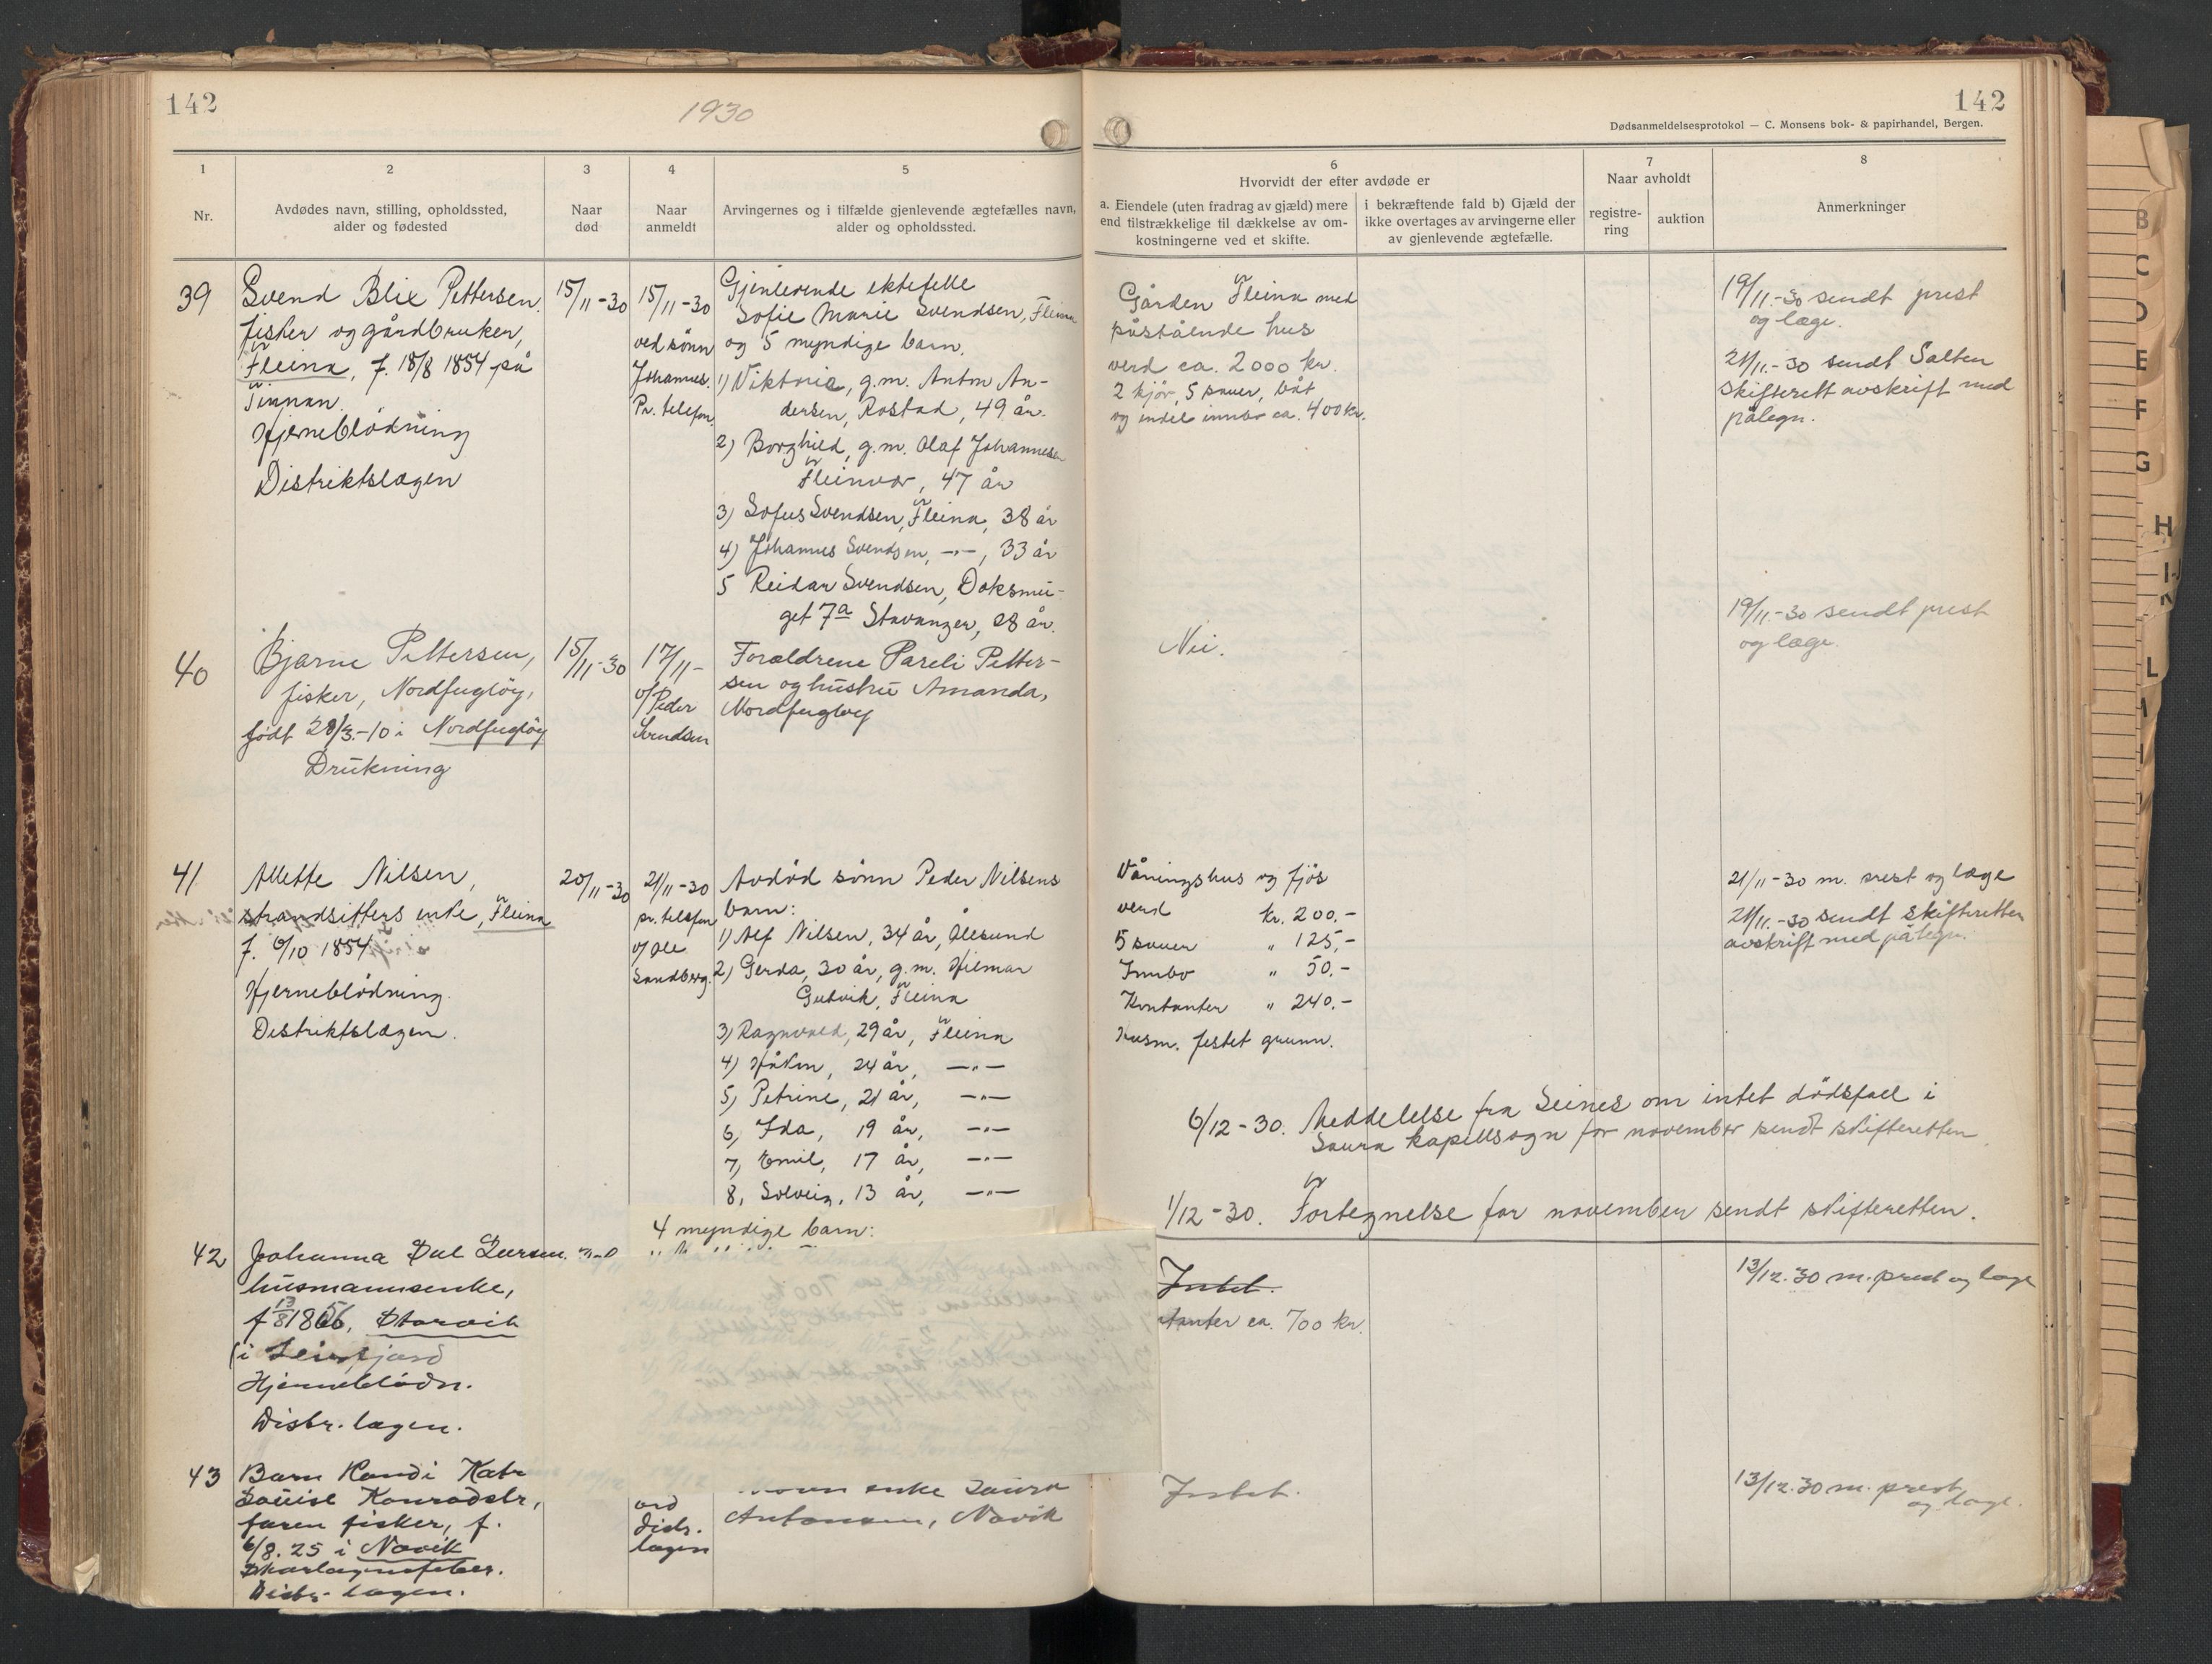 142
1930
142
Dødsanmeldelsesprotokol — C. Monsens bok- & papirhandel, Bergen.
1
Nr.
2
Avdødes navn, stilling, opholdssted,
alder og fødested
3
Naar
død
4
Naar
anmeldt
5
Arvingernes og i tilfælde gjenlevende ægtefælles navn,
alder og opholdssted.
6
Hvorvidt der efter avdøde er
a. Eiendele (uten fradrag av gjæld) mere
end tilstrækkelige til dækkelse av om-
kostningerne ved et skifte.
i bekræftende fald b) Gjæld der
ikke overtages av arvingerne eller
av gjenlevende ægtefælle.
7
Naar avholdt
registre-
ring
auktion
8
Anmerkninger
39
Svend Blix Pettersen.
fisker og gårdbruker,
Fleina, f. 18/8 1854 på
Hjerneblødning
Distriktslægen
15/11-30
15/11-30
ved sønn
Johannes.
Pr. telefon.
Gjenlevende ektefelle
Sofie Marie Svendsen, Fleina
og 5 myndige barn.
1) Viktoria, g.m. Anton An-
dersen, Rostad, 49 år.
2) Borghild, g.m. Olaf Johannesen
Fleinvær, 47 år
3) Sofus Svendsen, Fleina, 38 år
4) Johannes Svendsen, -"-, 33 år
5 Reidar Svendsen, Doksmu-
get 7a Stavanger, 28 år.
Gården Fleina med
påstående hus
verd ca. 2000 kr.
2 kjør, 5 sauer, båt
og endel innbo ca. 400 kr.
19/11.-30 sendt prest
og læge.
21/11.-30 sendt Salten
skifterett avskrift med
pålegn.
40
Bjarne Pettersen,
fisker, Nordfugløy,
født 28/3.-10 i Nordfugløy
Drukning
15/11-30
17/11-
v/Peder
Svendsen
Foreldrene Pareli Petter-
sen og hustru Amanda,
Nordfugløy
Nei.
19/11.-30 sendt prest
og læge.
41
Allette Nilsen,
strandsitters enke, Fleina
f. 6/10 1854
Hjerneblødning.
Distriktslægen.
20/11-30
21/11-30
pr. telefon
v/Ole
Sandberg.
Avdød sønn Peder Nilsens
barn:
1) Alf Nilsen, 34 år, Ålesund
2) Gerda, 30 år, g.m. Hilmar
Gutvik, Fleina
3) Ragnvald, 29 år, Fleina
4) Håkon, 24 år, -"-
5) Petrine, 21 år, -"-
6, Ida, 19 år, -"-
7, Emil, 17 år, -"-
8, Solveig, 13 år, -"-
Våningshus og fjøs
verd kr. 200.-
5 sauer " 125,-
Innbo " 50.-
Kontanter " 240.-
Husm. festet grunn.
21/11-30 m. prest og læge
21/11.-30 sendt skifteretten
avskrift med pålegn.
6/12-30. Meddelelse fra Seines om intet dødsfall i
Saura kapellsogn for november sendt skifteretten.
1/12-30. Fortegnelse for november sendt skifteretten.
4 myndige barn:
42
Johanna Dal Larsen.
husmannsenke,
f 13/8 1856, Storvik
Hjerneblødn.
Distr.lægen.
Intet.
tanter ca. 700 kr.
13/12.30 m. prest og læge
43
Barn Randi Katr
Louise Konradstr,
faren fisker, f.
6/8.25 i Novik
Skarlagensfeber.
Distr.lægen.
distr.
lægen
enke Laura
Antonsen, Novik
Intet.
13/12.30 m. prest
og læge.
B
C
D
E
F
G
H
I-J
K
L